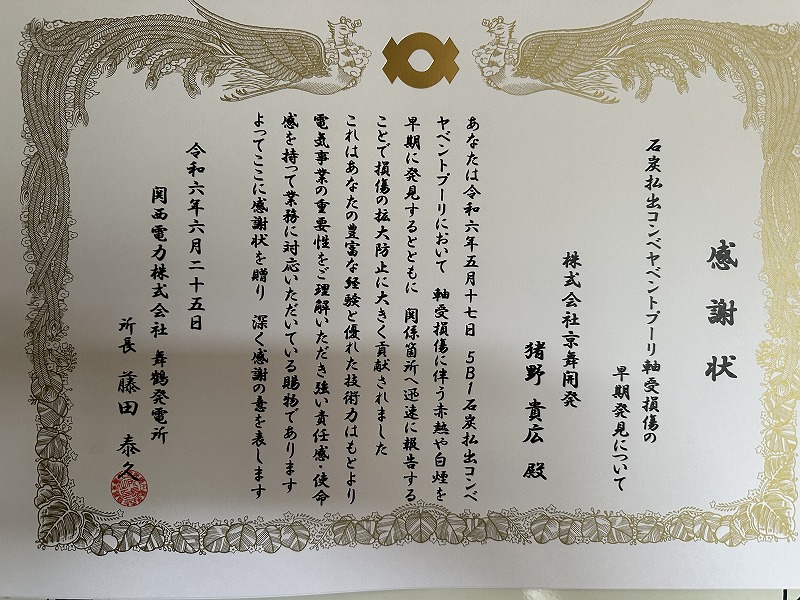 感謝状
石炭払出コンベヤベントプーリ軸受損傷の
早期発見について
株式会社京舞開発
猪野貴広殿
あなたは令和六年五月十七日 5B1石炭払出コンベ
ヤベントプーリにおいて 軸受損傷に伴う赤熱や白煙を
早期に発見するとともに 関係箇所へ迅速に報告する
ことで損傷の拡大防止に大きく貢献されました
これはあなたの豊富な経験と優れた技術力はもとより
電気事業の重要性をご理解いただき強い責任感・使命
感を持って業務に対応いただいている賜物であります
よってここに感謝状を贈り 深く感謝の意を表します
令和六年六月二十五日
関西電力株式会社 舞鶴発電所
所長 藤田泰久